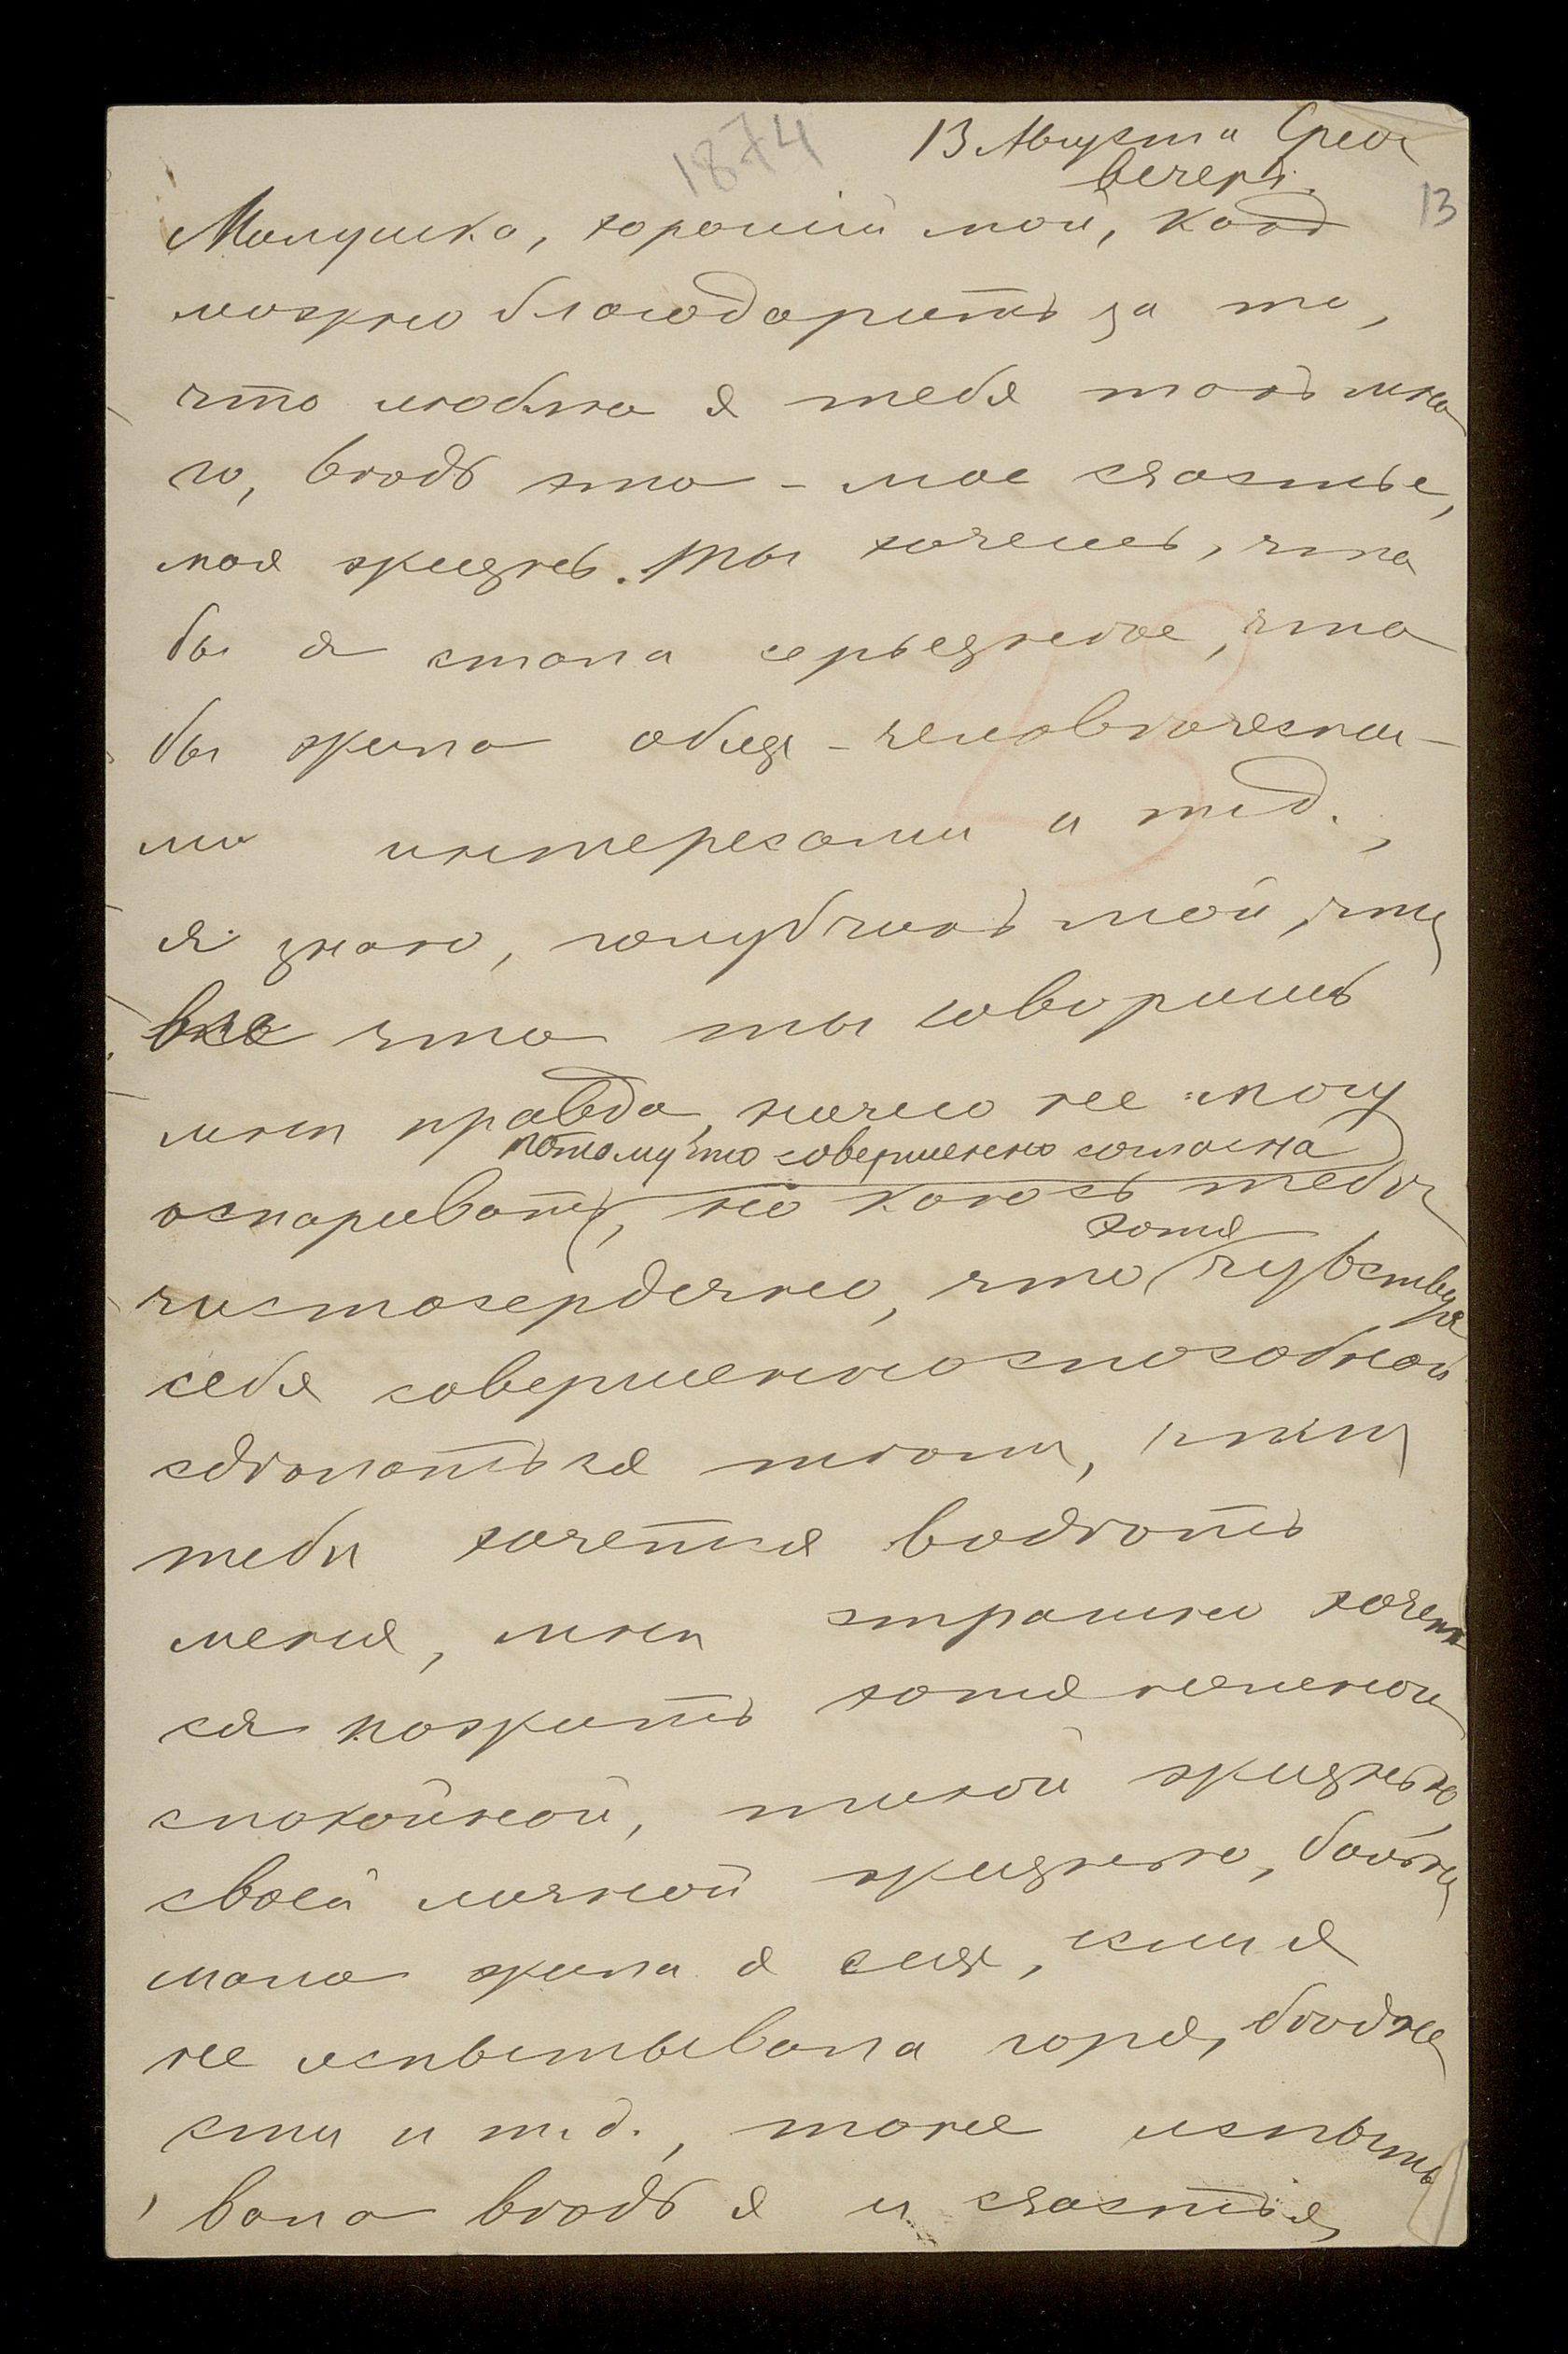 1874
13 Августа Среда
вечеръ.
13
Милушка, хорошiй мой, какъ
можно благодарить за то,
что люблю я тебя такъ мно
го, вѣдь это - мое счастье,
моя жизнь. Ты хочешь, что
бы я стала серьезнѣе, что
бы жила обще-человѣчески-
ми интересами и т.д.,
я знаю, голубчикъ мой, что
все что ты говоришь
мнѣ правда, ничего не могу
потому что совершенно согласна
оспаривать, но каюсь тебѣ
хотя
чистосердечно, что чувствуя
себя совершенно способной
сдѣлаться такой,
тебѣ хочется видѣть
меня, мнѣ страшно хочет
ся пожить хотя немного
спокойной, тихой жизнью,
своей личной жизнью,
мало жила я ею, если я
не испытывала горя, бѣдно
сти и т.д., то не испыты
вала вѣдь я и счастья,